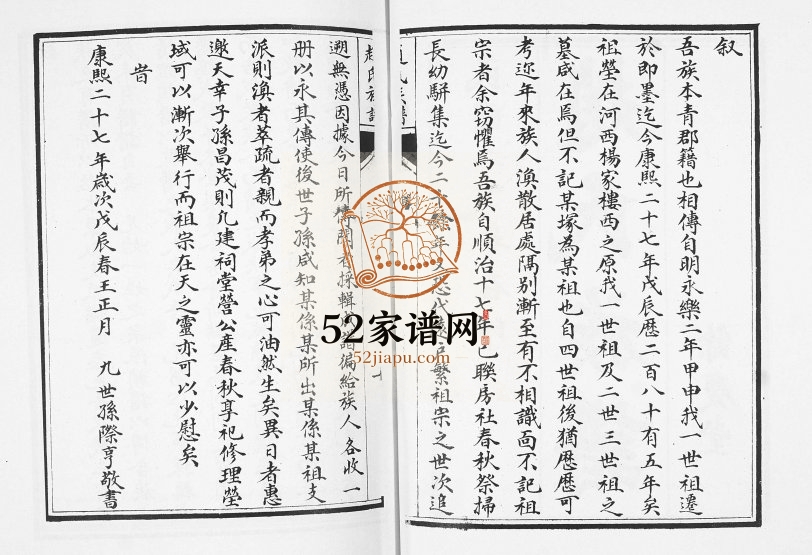 叙
吾族本青郡籍也相傳自明永樂二年甲申我一世祖遷
於即墨迄今康熙二十七年戊辰歷二百八十有五年矣
祖塋在河西楊家樓西之原我一世祖及二世三世祖之
墓咸在焉但不記某塚為某祖也自四世祖後猶歷歷可
考迩年來族人渙散居處隔別漸至有不相識面不記祖
宗者余窃懼焉吾族自順治十七年已聯房社春秋祭掃
長幼駢集迄今二十餘年 繁祖宗之世次追
趙氏族譜
遡無憑因據今日所傳聞者採輯 編給族人各收一
册以永其傳使後世子孫咸知某係某所出某係某祖支
派則渙者萃疏者親而孝弟之心可油然生矣異日者惠
邀天幸子孫昌茂則凢建祠堂營公産春秋享祀修理塋
域可以漸次舉行而祖宗在天之靈亦可以少慰矣
旹
康熙二十七年歲次戊辰春王正月 九世孫際亨敬書
52家谱网
52jiapu.com